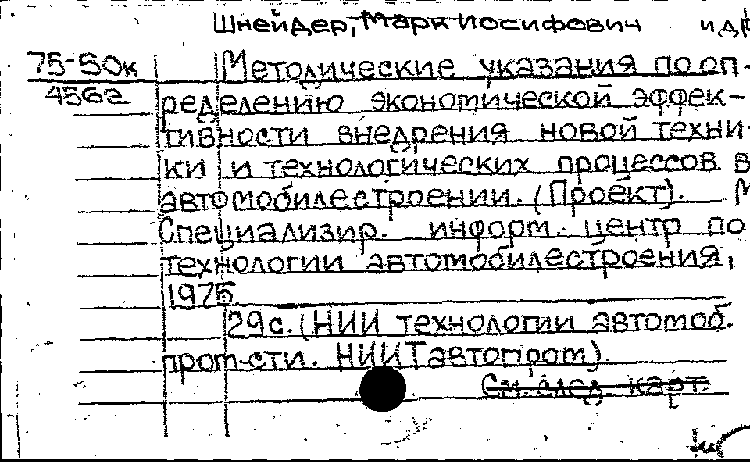 Шнейдер, Марк Иосифович и др
75-50к Методические указания по оп-
4562 ределению экономической эффек-
тивности внедрения новой техни-
ки и технологических процессов в
автомобилестроении. (Проект). М
Специализир. информ. центр по
технологии автомобилестроения,
1975
29с. (НИИ технологии автомоб.
пром-сти. НИИТавтопром).
См. след. карт.